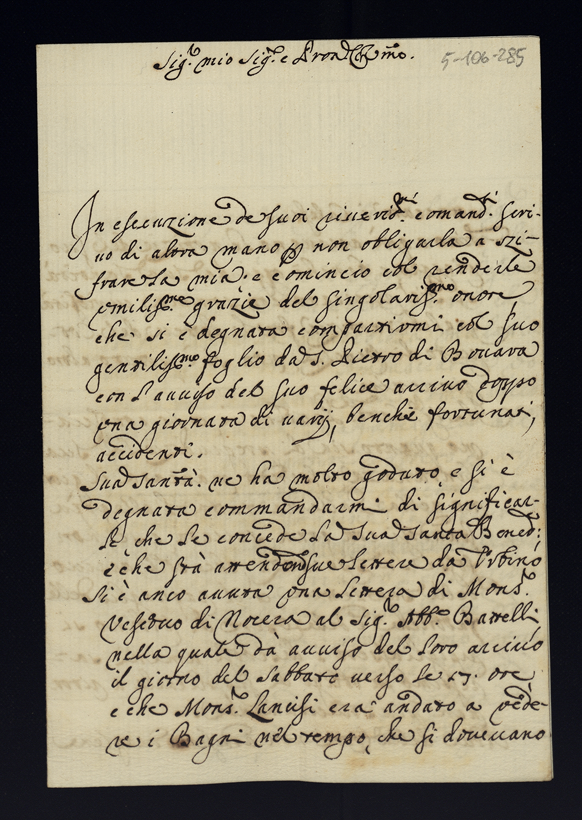 Sig.r mio Sig.r e Pron Col.mo.
5-106-285
In esecuzione de suoi riverit.mi comand.i scri-
vo di altra mano p non obligarla a szi-
frare la mia. e comincio col renderle
umiliss.me grazie del singolariss.mo onore
che si è degnata compartirmi col suo
gentiliss.mo foglio da S. Pietro di Bovara
con l'auuiso del suo felice arriuo doppo
una giornata di varij, benche fortunati,
accidenti.
Sua Santità. ne ha molto goduto, e si è
degnata commandarmi di significar-
le, che le concede la sua santa Bened:
e che stà attendendo sue lettere da Urbino
Si è anco auuta una lettera di Mons.r
Vescouo di Nocera al Sig.r Abb.e Battelli
nella quale dà auuiso del loro arriuo
il giorno del Sabbato verso le 17. ore
e che Mons.r Lancisi era andato a vede-
re i Bagni nel tempo, che si doveuano